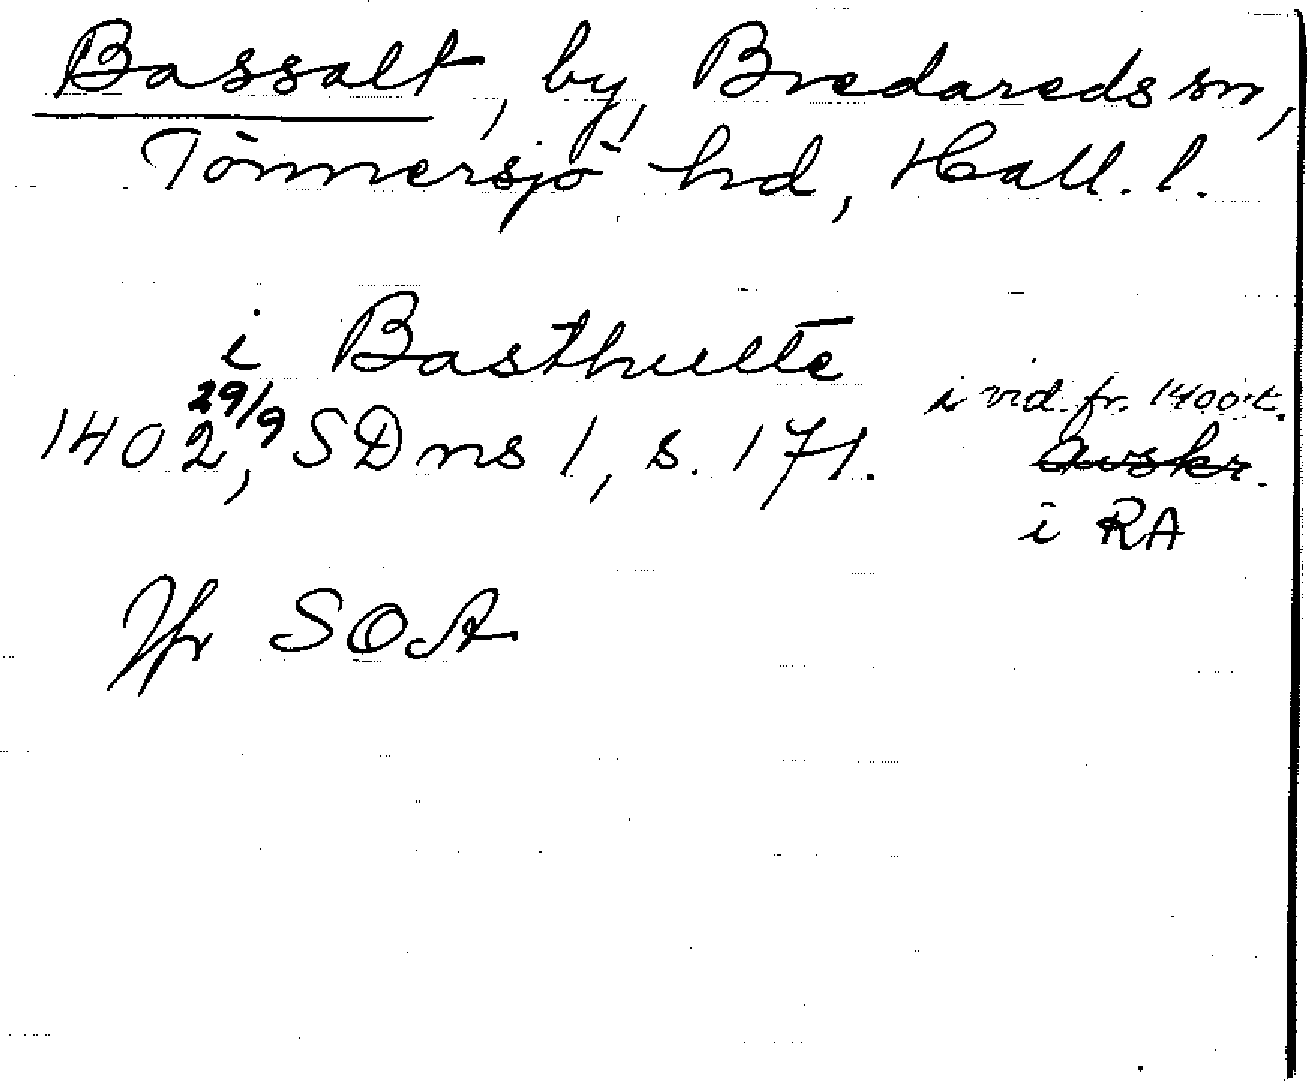 Bassalt, by, Bredareds sn,
Tönnersjö hd, Hall. l.
i Basthultē
29/9
i vid. fr. 1400-t.
1402, SDns 1, s. 171. avskr.
i RA
Jfr SOA